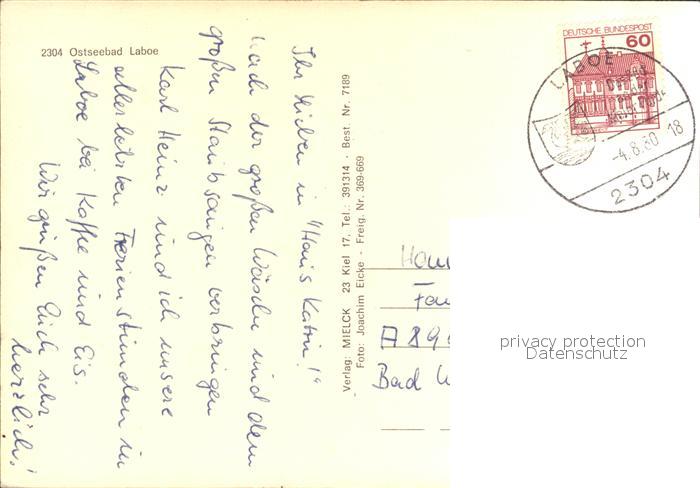 2304 Ostseebad Laboe
Ihr Lieben in "Haus Katrin!"
Nach der großen Wäsche und dem
großen Staubsaugen verbringen
Karl Heinz und ich unsere
allerletzten Ferienstunden in
Laboe bei Kaffee und Eis.
Wir grüßen Euch sehr
herzlich!
Verlag: MIELCK 23 Kiel 17, Tel.: 391314 · Best. Nr. 7189
Foto: Joachim Eicke - Freig. Nr. 369-669
DEUTSCHE BUNDESPOST
60
LABOE
-4.8.80 18
2304
Fam
Bad
privacy protection
Datenschutz